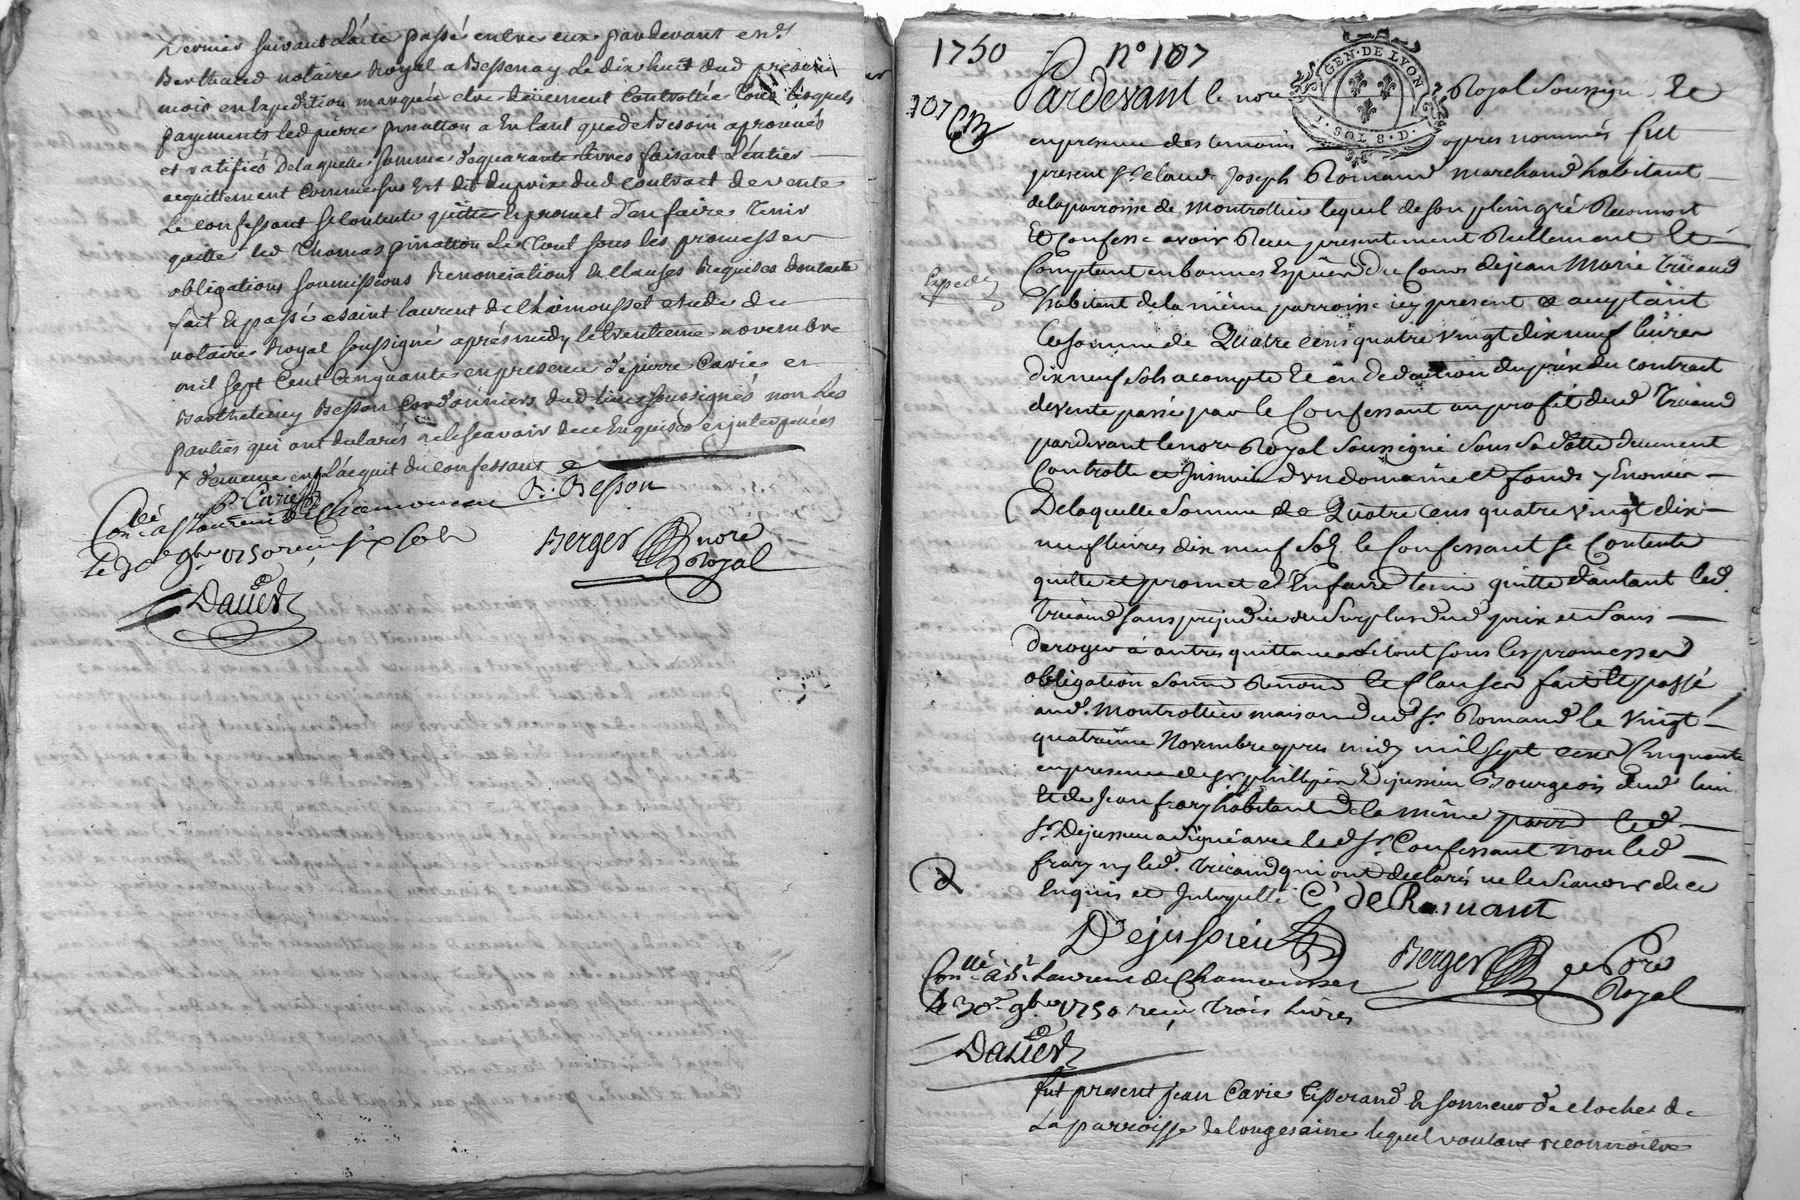 Dernier suivant l'acte passé entre eux pardevant
Berthaud notaire Royal a Bessenay le dix huit dud present
mois en Expedition marquée etre deüement Controllée tous lesquels
payements led pierre pinatton a En tant que de Besoin aprouvés
et ratifiés De laquelle somme de quarante livres faisant L'entier
acquittement comme sus Est dit du prix dud Contract de vente
Le confessant se contente quitte Et promet d'en faire tenir
quitte led Thomas pinatton Le tout sous les promesses
obligations soumissions Renonciations Et Clauses Requises dont acte
fait Et passé a saint laurent de Chamousset etude du
notaire Royal soussigné après midy le trentieme novembre
mil sept Cent Cinquante en presence de pierre Carie et
Barthelemy Besson Cordonniers dud lieu soussignés non les
parties qui ont declarés ne le scavoir de ce Enquises et interpellées
x d'ememe en l'acquit du confessant
P. Carie B. Besson
Con.lé a St Laurent de Chamousset
Le 30e 9bre 1750 reçu six sols
Berger nore
Royal
Dalier
1750 N° 107
GEN. DE LYON
1. SOL 8. D.
107
Pardevant le nore Royal Soussigné Et
en presence des temoins apres nommés fut
present Sr Claude Joseph Romand marchand habitant
de la parroisse de Montrottier lequel de son plein gré Reconnoit
Et Confesse avoir Reçu presentement Reellement Et
Comptant en bonnes Especes du Cours de jean Marie Tricaud
habitant de la même parroisse icy present & acceptant
La somme de Quatre cens quatre vingt dix neuf livres
Exped
dix neuf sols a compte Et en deduction du prix du contract
de vente passé par le Confessant au profit dud Tricaud
pardevant le nore Royal Soussigné Sous Sa datte deument
Controllé et Insinué d'un domaine et fonds y Enoncés
De laquelle Somme de Quatre cens quatre vingt dix
neuf livres dix neuf Sols le Confessant se Contente
quitte et promet d'En faire tenir quitte d'autant led.
Tricaud sans prejudice du Surplus dud prix et Sans
deroger à autres quittances Le tout sous les promesses
obligation Soum Renon Et Clauses fait Et passé
aud. Montrottier maison dud Sr Romand le vingt
quatrième Novembre apres midy mil Sept cens Cinquante
en presence de Sr phillipes Dejussieu Bourgeois dud lieu
Et de Jean frary habitant de la même parr led
Sr Dejussieu a Signé avec led Sr Confessant non led
frary ny led. Tricaud qui ont declarés ne le Scavoir de ce
Enquis et Interpellé C. de Romant
Dejussieu
Berger Nore
Royal
Con.llé a St Laurent de Chamousset
le 30e 9bre 1750 reçu trois livres
Dalier
fut present jean Carie Tisserand & sonneur de cloches de
La parroisse de longesaine lequel voulant reconnoitre